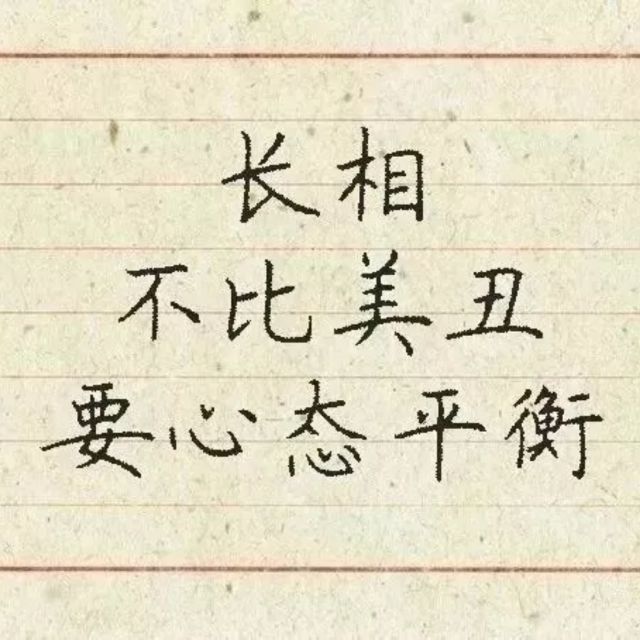 长相
不比美丑
要心态平衡